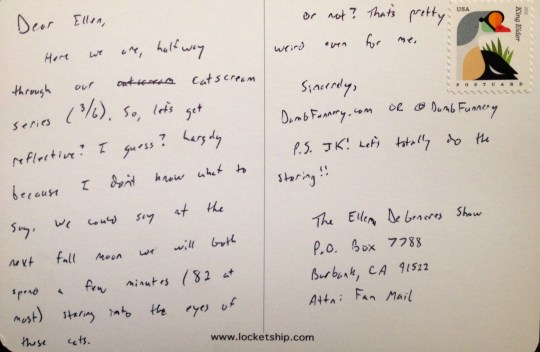 Dear Ellen,
Here we are, halfway
through our catscream catscream
series (3/6). So, let's get
reflective? I guess? Largely
because I don't know what to
say. We could say at the
next full moon we will both
spend a few minutes (82 at
most) staring into the eyes of
those cats.
or not? That's pretty
weird even for me.
Sincerely,
DumbFunnery.com OR @DumbFunnery
P.S. JK! Let's totally do the
staring!!
The Ellen DeGeneres Show
P.O. Box 7788
Burbank, CA 91522
Attn: Fan Mail
USA
King Eider
POSTCARD
www.locketship.com